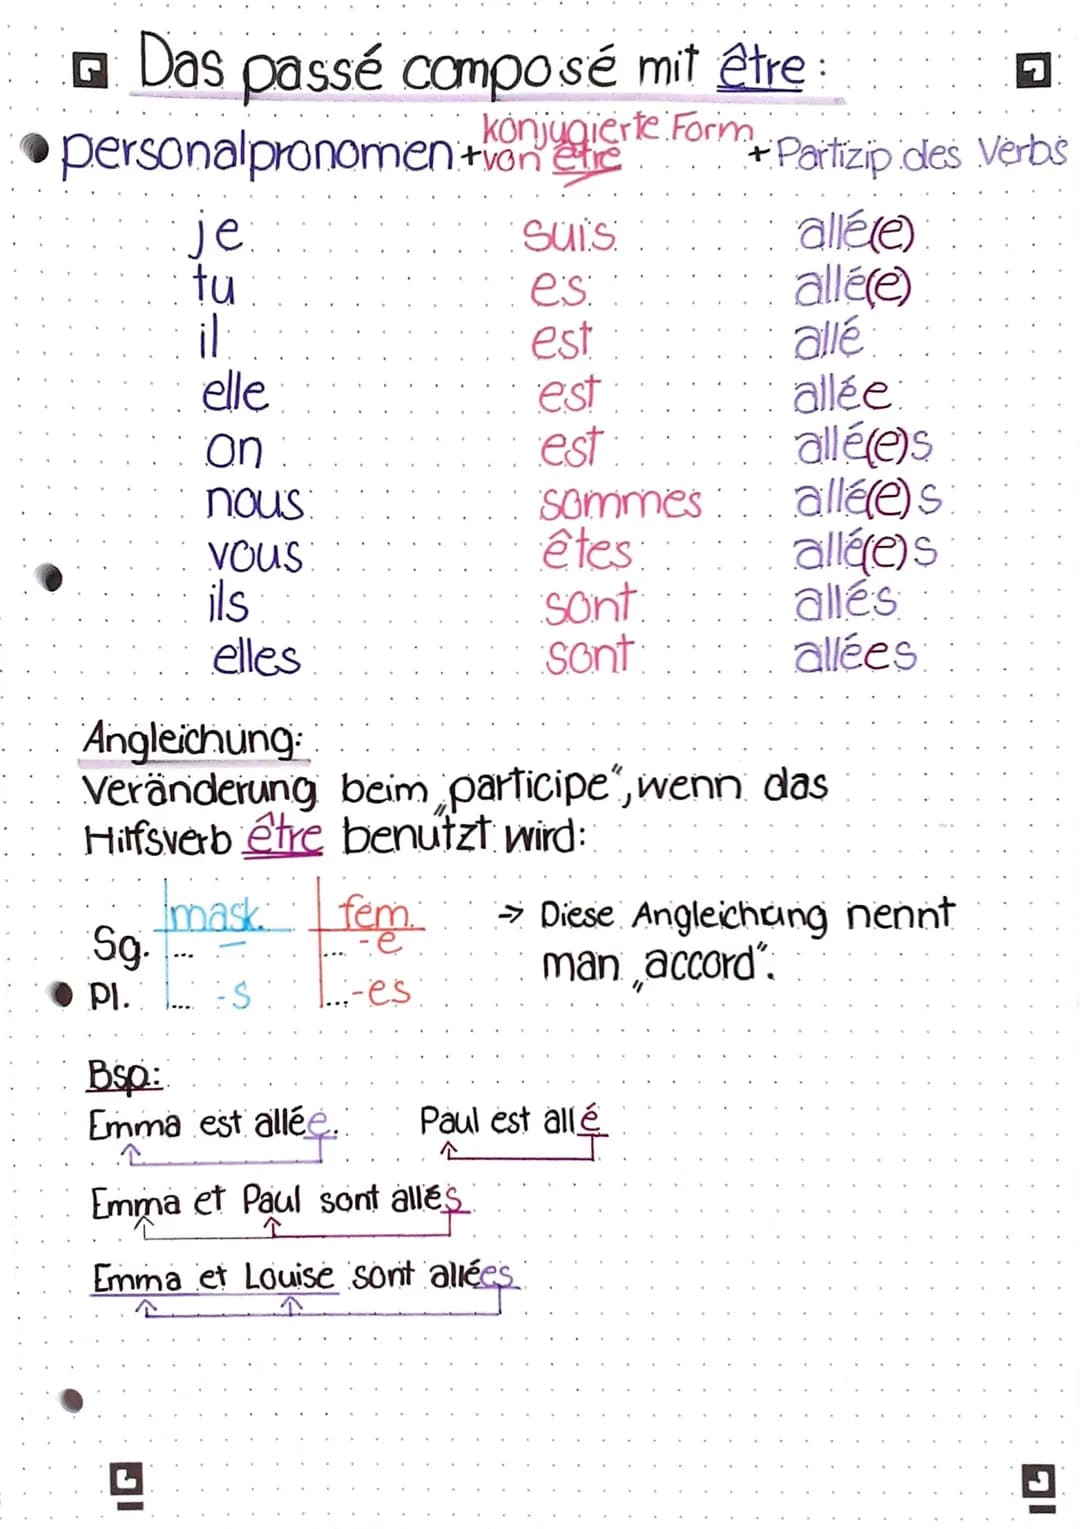 Das passé composé mit être:
personalpronomen + konjugierte Form von être + Partizip des Verbs
je suis allé(e)
tu es allé(e)
il est allé
elle est allée
on est allé(e)s
nous sommes allé(e)s
vous êtes allé(e)s
ils sont allés
elles sont allées
Angleichung:
Veränderung beim „participe“, wenn das
Hilfsverb être benutzt wird:
mask. fem.
Sg. ... – ... -e
Pl. ... -s ... -es
→ Diese Angleichung nennt
man „accord“.
Bsp.:
Emma est allée. Paul est allé
Emma et Paul sont allés
Emma et Louise sont allées